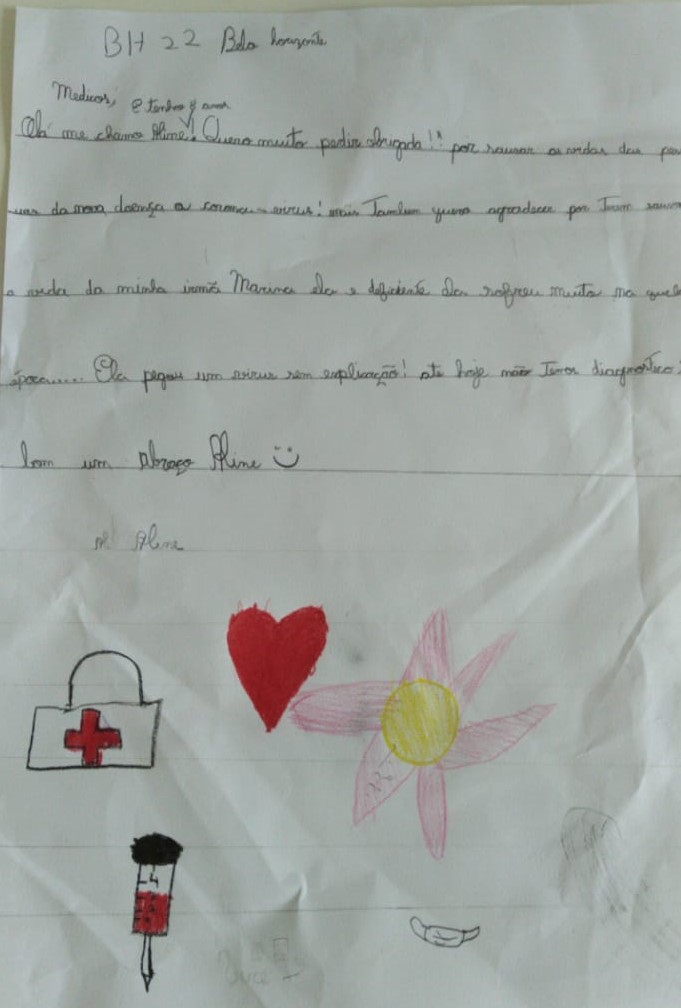 BH 22 Belo horizonte
Medicos,
e tenho 8 anos
Olá me chamo Aline! Quero muito pedir obrigada!! por sauvar as vidas das pes
uas da nova doença o corona-virus! mais Tambem quero agradecer por Terem sauva
a vida da minha irmã Marina ela e deficiente Ela sofreu muito na quel
época..... Ela pegou um virus sem explicação! ate hoje não Temos diagnostico
bom um abraço Aline
Aline